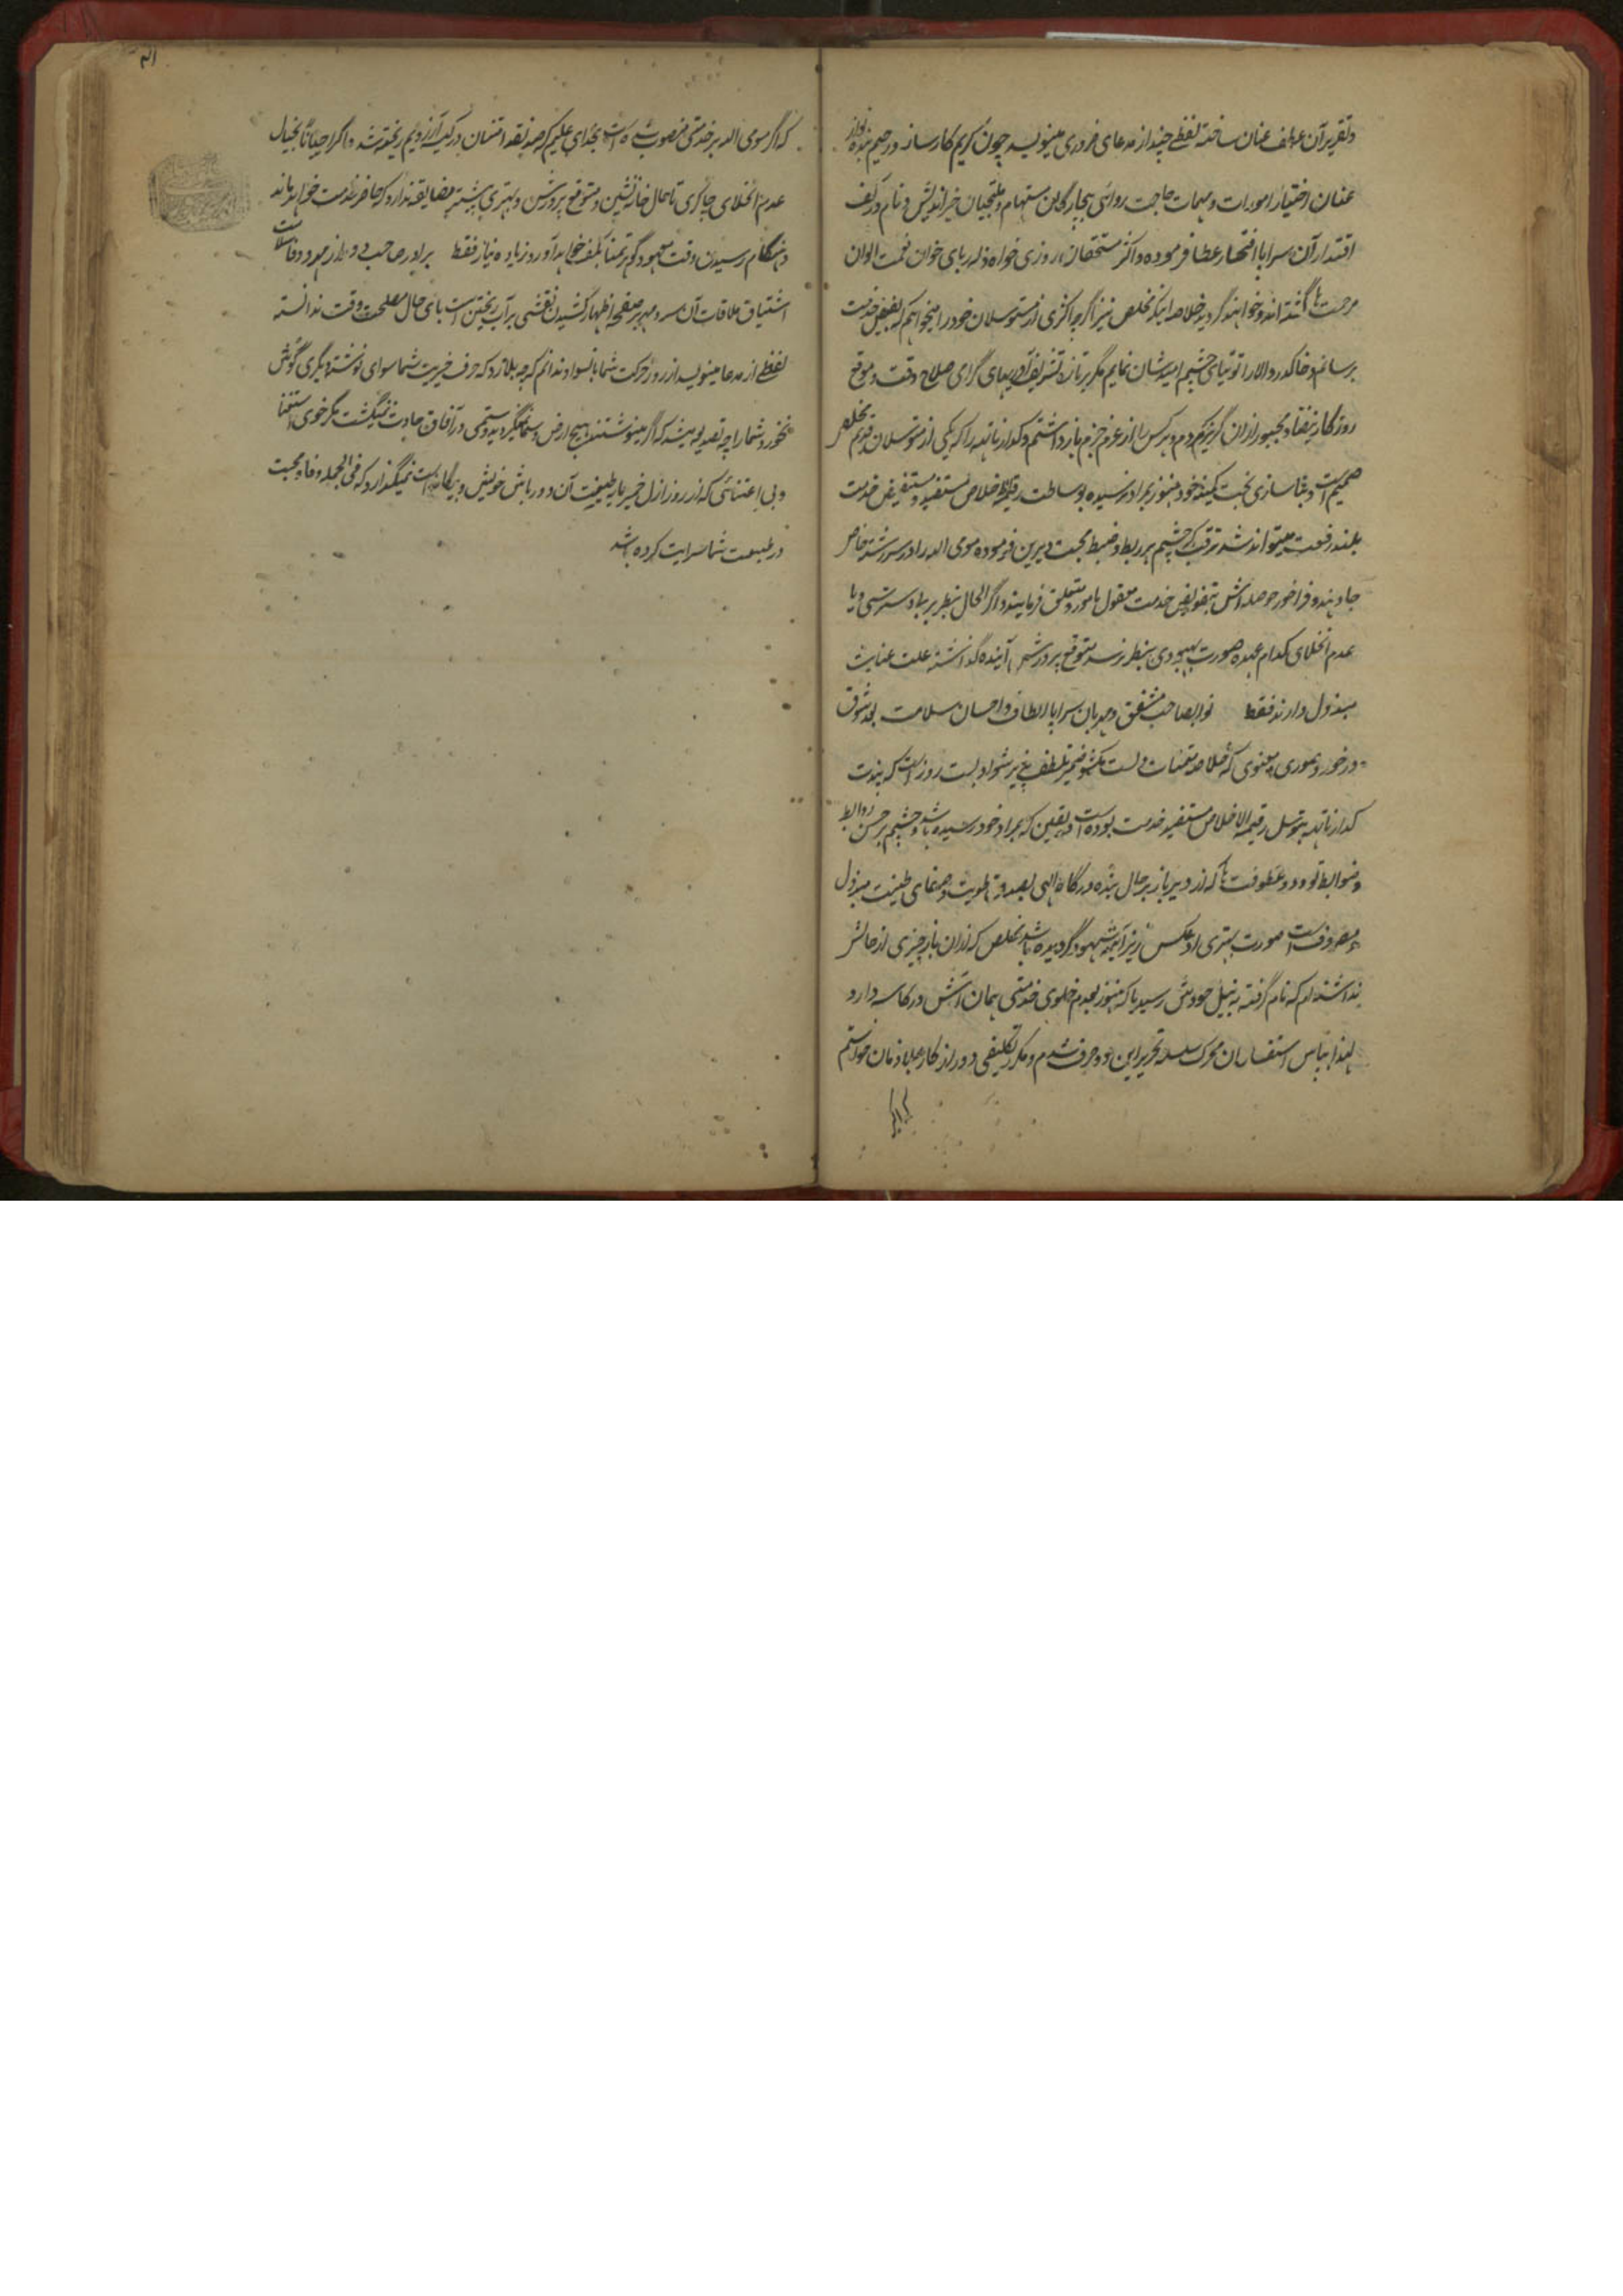 وتقریر آن عطف عنان ساخته لفظے چند از مدعای ضروری مینویسد چون کریم کارساز ورحیم بنده نواز
عنان اختیار امورات ومهمات حاجت روائی بیچارگان مستهام وملتجیان خیراندیش ونام در کف
اقتدار آن سراپا افتخار عطا فرموده واکثر مستحقان روزی خواه زله ربای خوان نعمت الوان
مرحمت گشته اند وخواهند گردید خلاصه اینکه مخلص نیز اگرچه اکثری از متوسلان خود را میخواهم که بفیض خدمت
برسانم وخاکدر والا را توتیای چشم امید شان نمایم مگر بر تازه تشریف آوریهای گرامی صلاح وقت وموقع
روزگار مجبور ازان گریزم وهر کس را از عزم جزم باز داشتم وگدار ناتهه را که یکی از متوسلان قدیم مخلص
صمیم است و بخت خود هنوز بمراد نرسیده بوساطت رقیمة اخلاص مستفید ومستفیض خدمت
بلند رفعت میتواند شد ترقب که چشم بر ربط وضبط محبت دیرین فرموده مومی الیه را در سررشته خاص
جا دهند وفراخور حوصله اش بتفویض خدمت معقول مامور ومتعلق فرمایند واگر الحال بنظر
عدم انخلای کدام عهده صورت بهبودی بنظر نرسد متوقع پرورش آینده گذاشته علت عنایت
مبذول دارند فقط نوابصاحب مشفق ومهربان سراپا الطاف واحسان سلامت بعد شوق
درخور صوری ومعنوی که خلاصه متمنیات دلست مکشوف ضمیر تلطف پذیر شواد بیست روز است که پندت
گدار ناتهه بتوسل رقیمة الاخلاص مستفید خدمت بوده است ویقین که بمراد خود رسیده باشد وچشم بر حسن روابط
وضوابط تودد وعطوفت که از دیر باز بر حال بنده درگاه الهی بصدق طویت وصفای طینت مبذول
ومصروفست صورت بهتری او عکس ریز آئینه شهود گردیده باشد مخلص که ازان باز چیزی از حالش
نداشته ام که نام گرفته به نیل رسید یا که هنوز بعدم خلوی خدمتی همان آش در کاسه دارد
لهذا بپاس استفسار آن محرک سلسله تحریر این دو حرف شدم ومکرر تکلیفی دور از کار بملازمان خواستم
که اگر
که اگر مومی الیه بر خدمتی منصوب شده است بخدای علیم که صد نقد امتنان در کیسه آرزویم ریخته شد واگر احیاناً بخیال
عدم انخلای چاکری تا حال خانه نشین ومتوقع پرورش وبهتری بیشتر مضایقه ندارد که حاضر خدمت خواهد ماند
وهنگام رسیدن وقت معهود گوهر تمنا بکف خواهد آورد زیاده نیاز فقط برادر صاحب ودود از مهر ووفا سلامت
اشتیاق ملاقات آن سر ومهر بر صفحه اظهار کشیدن نقشی بر آب ریختن است بپای حال مصلحت وقت ندانسته
لفظے از مدعا مینویسد از روز حرکت شما بانسوا ندانم که چه بلا زد که حرف خیریت شما سوای نوشته دیگری گوش
نخورد شما را چه تصدیع میشد که اگر مینوشتند هیچ ارض وسما نمیگردید وستمی در آفاق حادث نمیگشت مگر خوی استغنا
وبی اعتنائی که از روز ازل خمیر مایه طینت آن دور باش خویش وبیگانه است نمیگذارد که فی الجمله وفا ومحبت
در طبیعت شما سرایت کرده باشد